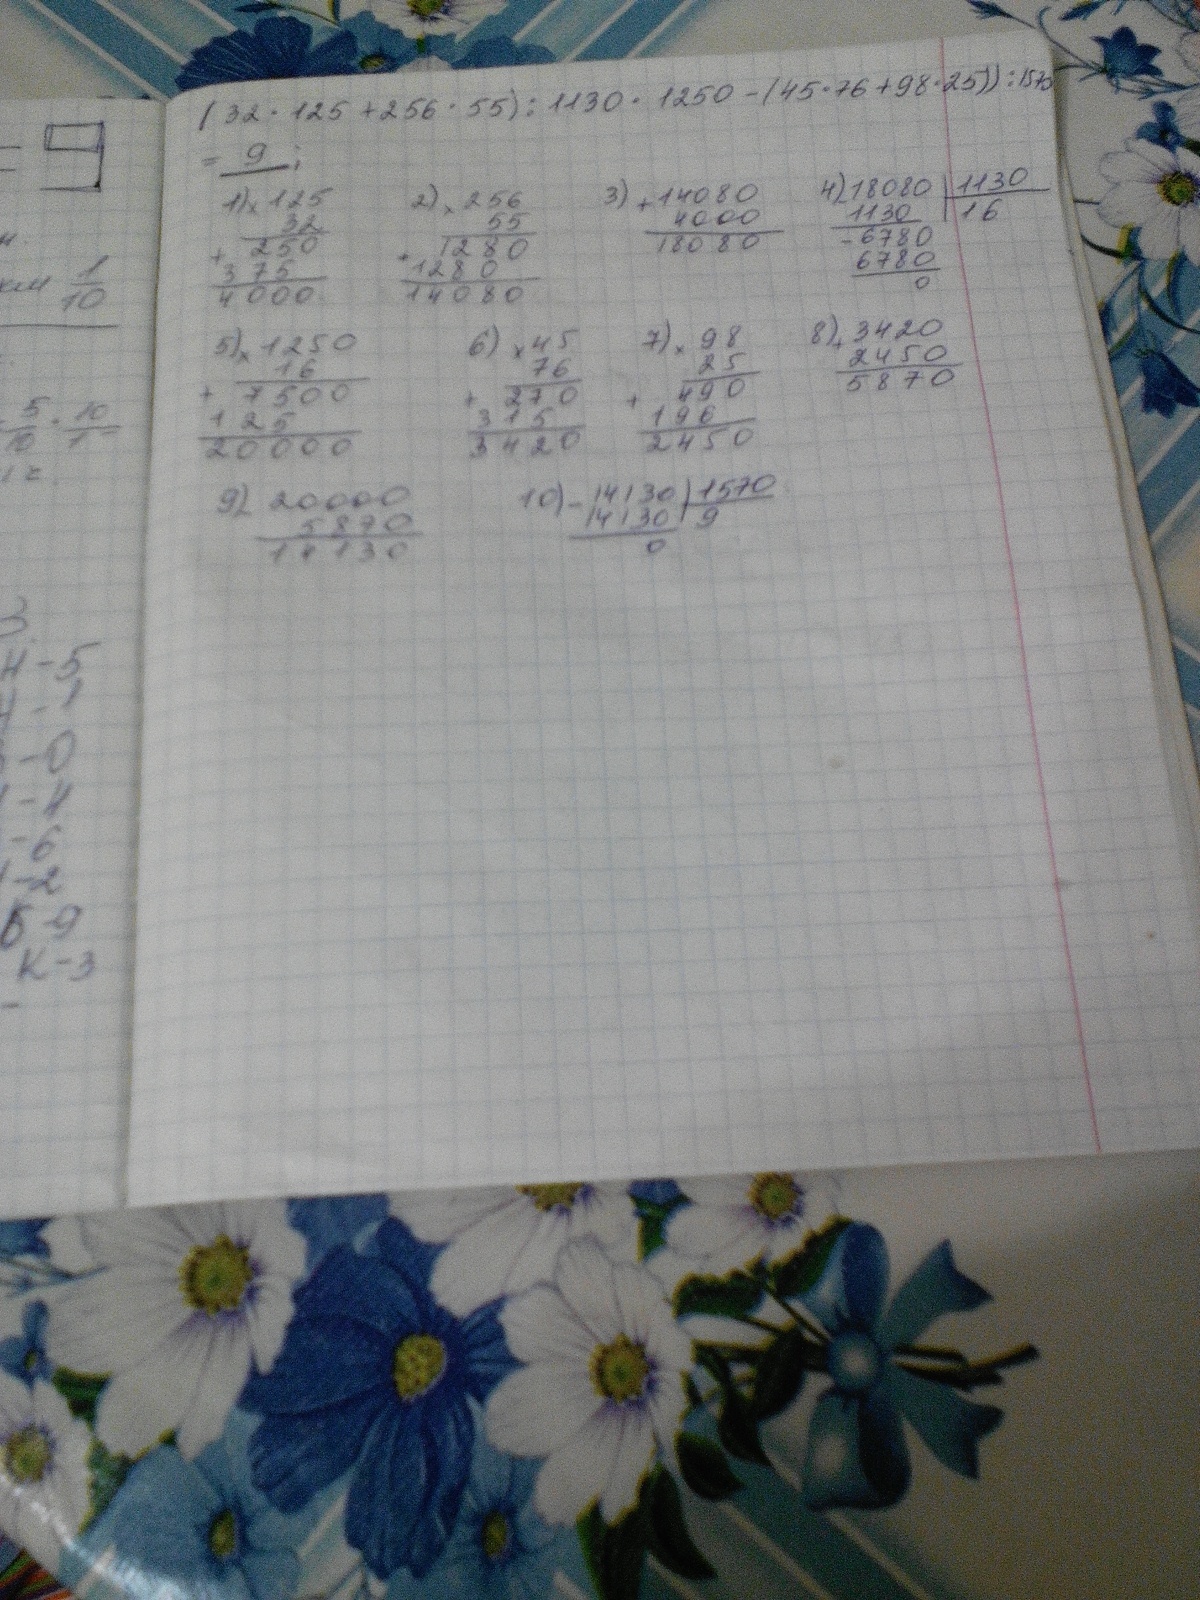 (32·125+256·55):1130·1250-(45·76+98·25)):1570
= 9;
1) × 125
32
+ 250
375
4000
2) × 256
55
+ 1280
1280
14080
3) + 14080
4000
18080
4) 18080 | 1130
1130 | 16
- 6780
6780
0
5) × 1250
16
+ 7500
125
20000
6) × 45
76
+ 270
315
3420
7) × 98
25
+ 490
196
2450
8) + 3420
2450
5870
9) - 20000
5870
14130
10) - 14130 | 1570
14130 | 9
0
1
10
5 · 10
10 1
-5
-0
-4
-6
-2
Б-9
К-3